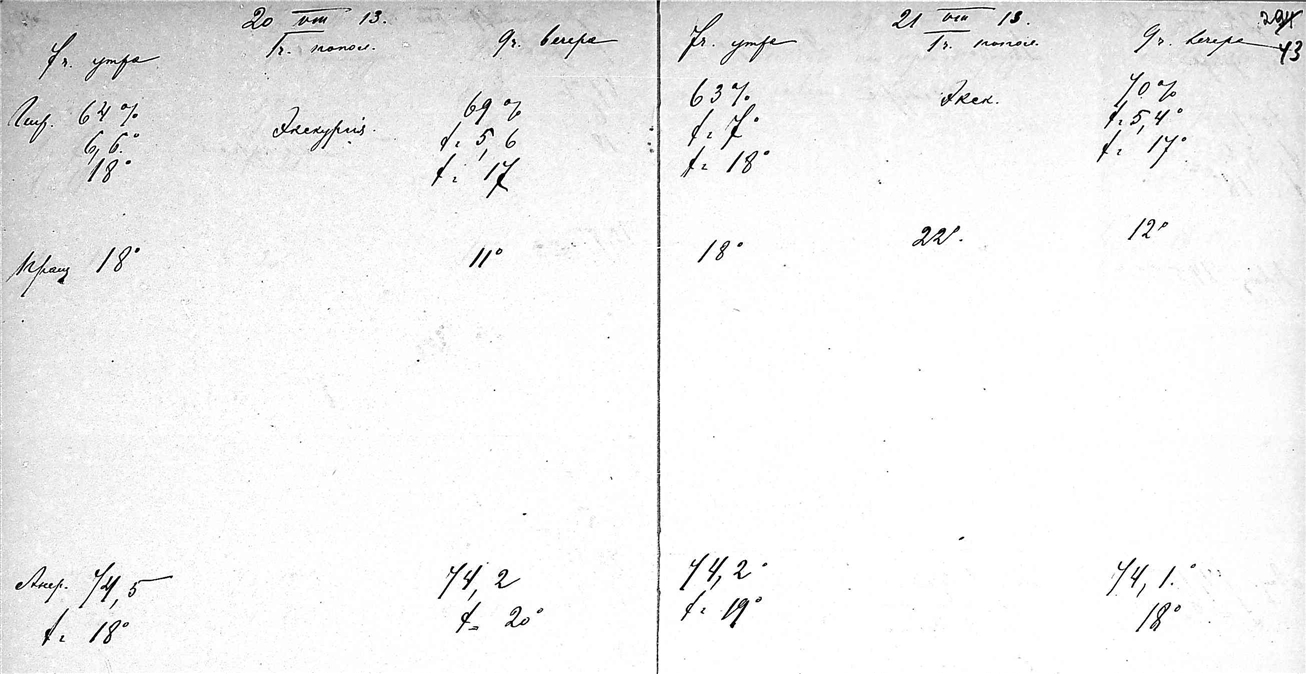 20 VIII 13.
7 ч. утра 1 ч. попол. 9 ч. вечера
64% Экскурсия. 69%
6,6° t= 5,6
18° t= 17
18° 11°
Анер. 74,5 74,2
t= 18° t= 20°
21 VIII 13.
7 ч. утра 1 ч. попол. 9 ч. вечера
43
63% Экск. 70%
t= 7° t= 5,4°
t= 18° t= 17°
18° 22°. 12°
74,2° 74,1.°
t= 19° 18°